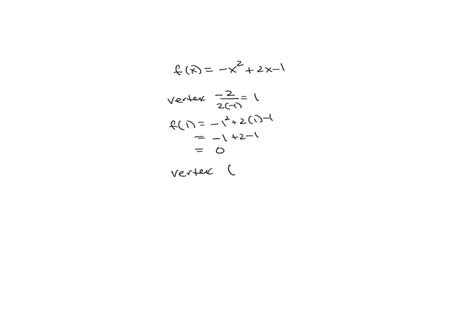 f(x) = -x² + 2x - 1
vertex -2/2(-1) = 1
f(1) = -1² + 2(1) - 1
= -1 + 2 - 1
= 0
vertex (